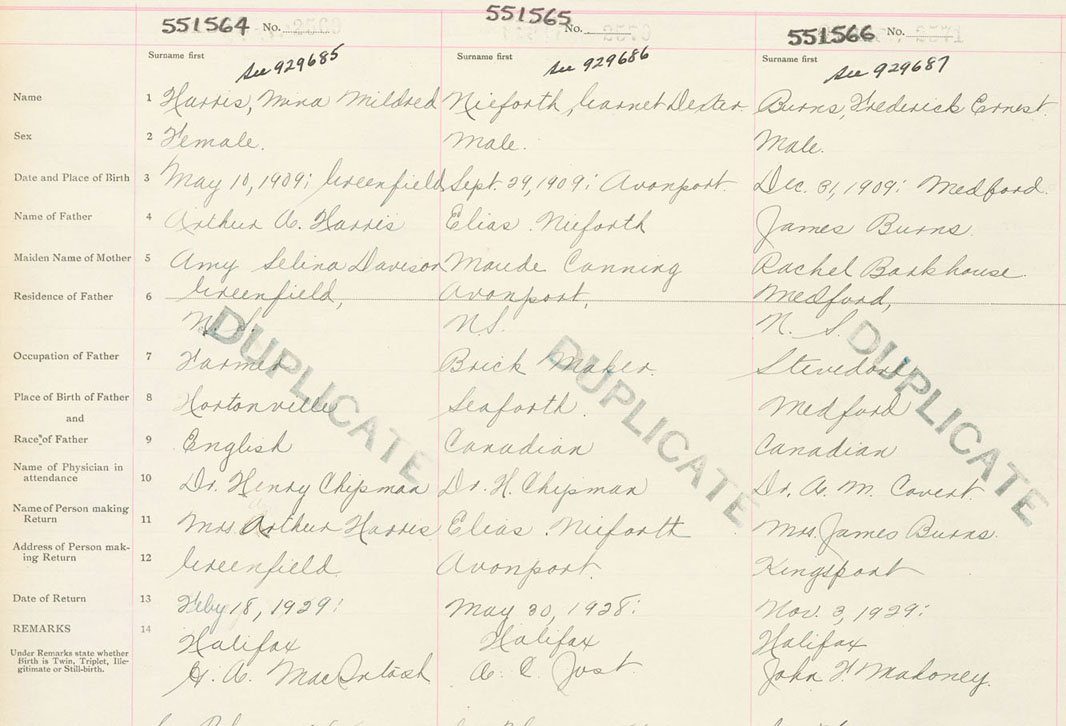 551564 No. 2569 551565 No. 2570 551566 No. 2571
Surname first Surname first Surname first
See 929685 See 929686 See 929687
Name 1 Harris, Mina Mildred Nieforth, Garnet Dexter Burns, Frederick Ernest
Sex 2 Female. Male. Male.
Date and Place of Birth 3 May 10, 1909; Greenfield Sept. 29, 1909; Avonport. Dec. 31, 1909; Medford.
Name of Father 4 Arthur A. Harris Elias Nieforth James Burns.
Maiden Name of Mother 5 Amy Selina Davison Maude Canning Rachel Barkhouse.
Residence of Father 6 Greenfield, Avonport, Medford,
N.S. N.S. N. S.
Occupation of Father 7 Farmer Brick Maker. Stevedore
Place of Birth of Father 8 Hortonville Seaforth. Medford
and
Race of Father 9 English Canadian Canadian
Name of Physician in
attendance 10 Dr. Henry Chipman Dr. H. Chipman Dr. A. M. Covert
Name of Person making
Return 11 Mrs. Arthur Harris Elias Nieforth Mrs. James Burns.
Address of Person mak-
ing Return 12 Greenfield Avonport. Kingsport
Date of Return 13 Feby 18, 1929: May 30, 1928: Nov. 3, 1929:
REMARKS 14 Halifax Halifax Halifax
Under Remarks state whether
Birth is Twin, Triplet, Ille-
gitimate or Still-birth.
G. A. MacIntosh A. C. Jost John F. Mahoney.
DUPLICATE DUPLICATE DUPLICATE